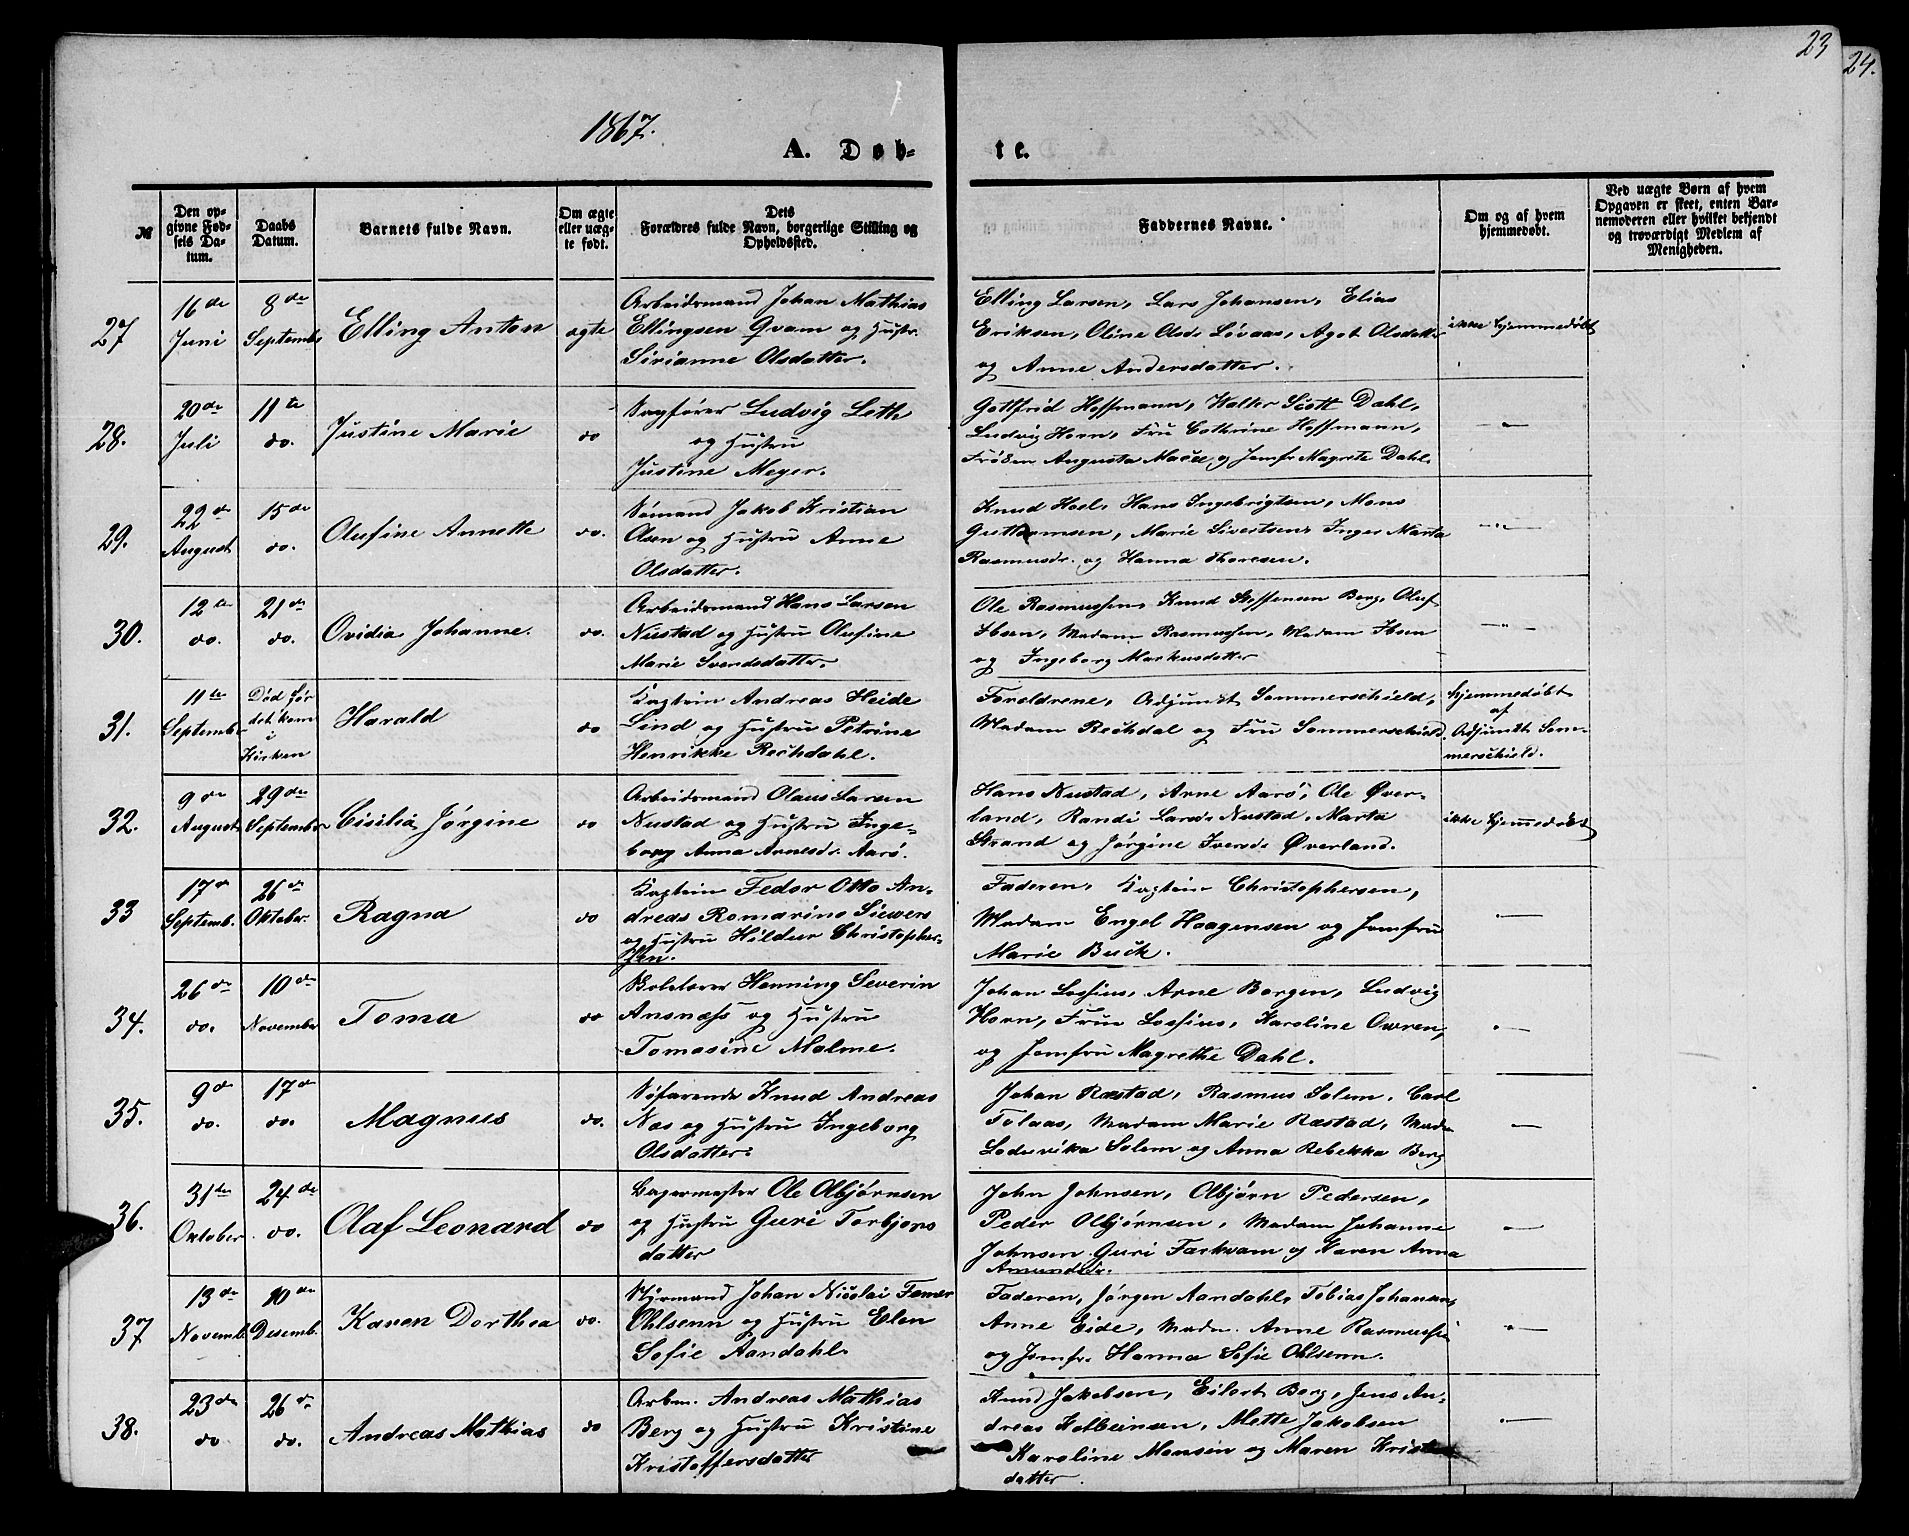 23
24.
1867.
A. Døb-
te.
№
Den op-
givne Fød-
sels Da-
tum.
Daabs
Datum.
Barnets fulde Navn.
Om ægte
eller uæg-
te født.
Dets
Forældres fulde Navn, borgerlige Stilling og
Opholdssted.
Faddernes Navne.
Om og af hvem
hjemmedøbt.
Ved uægte Børn af hvem
Opgaven er skeet, enten Bar-
nemoderen eller hvilket bekjendt
og troværdigt Medlem af
Menigheden.
27
16de
Juni
8de
Septembr
Elling Anton
ægte
Arbeidsmand Johan Mathias
Ellingsen Qvam og Hustr.
Sirianne Olsdatter.
Elling Larsen, Lars Johansen, Elias
Eriksen, Oline Olsd. Løvaas, Aget Olsdatter
og Anne Andersdatter.
ikke hjemmedøbt
28.
20de
Juli
11te
do.
Justine Marie
do
Sagfører Ludvig Leth
og Hustru
Justine Meyer.
Gottfrid Hoffmann, Walter Scott Dahl,
Ludvig Horn, Fru Cathrine Hoffmann,
Frøken Augusta Maëe og Jomfr Magrete Dahl.
—"—
29.
22de
August
15de
do.
Olufine Annette
do.
Sømand Jakob Kristian
Olsen og Hustru Anne
Olsdatter.
Knud Hoel, Hans Ingebrigtsen, Mons
Guttormsen, Marie Sivertsen, Inger Marta
Rasmusdr. og Hanna Thoresen.
—"—
30.
12te
do.
21de
do.
Ovidia Johanne.
do.
Arbeidsmand Hans Larsen
Nustad og Hustru Olufine
Marie Svendsdatter.
Ole Rasmussen, Knud Steffensen Berg, Oluf
Ibsen, Madam Rasmussen, Madam Ibsen
og Ingeborg Markusdatter
—"—
31.
11te
September
Død før
det kom
i
Kirken
Harald
do
Kaptein Andreas Heide
Lind og Hustru Petrine
Henrikke Rechdahl.
Foreldrene, Adjunkt Sommerschield,
Madam Rechdal og Fru Sommerschield.
hjemmedøbt
af
Adjunkt Som-
merschield.
32.
9de
August
29de
September
Cisilia Jørgine
do
Arbeidsmand Olaus Larsen
Nustad og Hustru Inge-
borg Anna Arnesdr. Aarö.
Hans Nustad, Arne Aarö, Ole Øver-
land, Randi Larsd. Nustad, Marta
Strand og Jørgine Iversd. Øverland.
ikke hjemmedøbt
33
17de
Septemb.
26de
Oktober.
Ragna
do
Kaptein Fedor Otto An-
dreas Romarino Siewers
og Hustru Hildur Christopher-
sen.
Faderen, Kaptein Christophersen,
Madam Engel Haagensen og Jomfru
Marie Buck.
—"—
34.
26de
do.
10de
November
Toma
do
Henning Severin
Ansnæss og Hustru
Tomasine Malme.
Johan Lossius, Arne Borgen, Ludvig
Horn, Frue Lossius, Karoline Owren,
og Jomfru Magrethe Dahl.
—"—
35.
9de
do.
17de
do.
Magnus
do.
Søfarende Knud Andreas
Næs og Hustru Ingeborg
Olsdatter.
Johan Ræstad, Rasmus Solem, Carl
Tolaas, Madam Marie Ræstad, Madm
Lodovika Solem og Anna Rebekka Berg
—
36.
31te
Oktober
24de
do.
Olaf Leonard
do
Bagermester Ole Olbjørnsen
og Hustru Guri Torbjørns
datter
John Johnsen, Olbjørn Pedersen,
Peder Olbjørnsen, Madam Johanne
Johnsen. Guri Farkvam og Karen Anna
Amundsdr.
—"—
37
13de
Novemb.
10de
Desemb.
Karen Dorthea
do.
Styrmand Johan Nicolai Tømer
Ohlsenn og Hustru Elen
Sofie Aandahl.
Faderen, Jørgen Aandahl, Tobias Johansen,
Anne Eide, Madm. Anne Rasmussen
og Jomfr. Hanna Sofie Ohlsenn.
—"—
38.
23de
do
26de
do.
Andreas Mathias
do
Arbm. Andreas Mathias
Berg og Hustru Kristine
Kristoffersdatter
Knud Jakobsen, Eilert Berg, Jens An-
dreas Kolbeinsen, Mette Jakobsen
Karoline Monsen og Maren
datter.
—"—